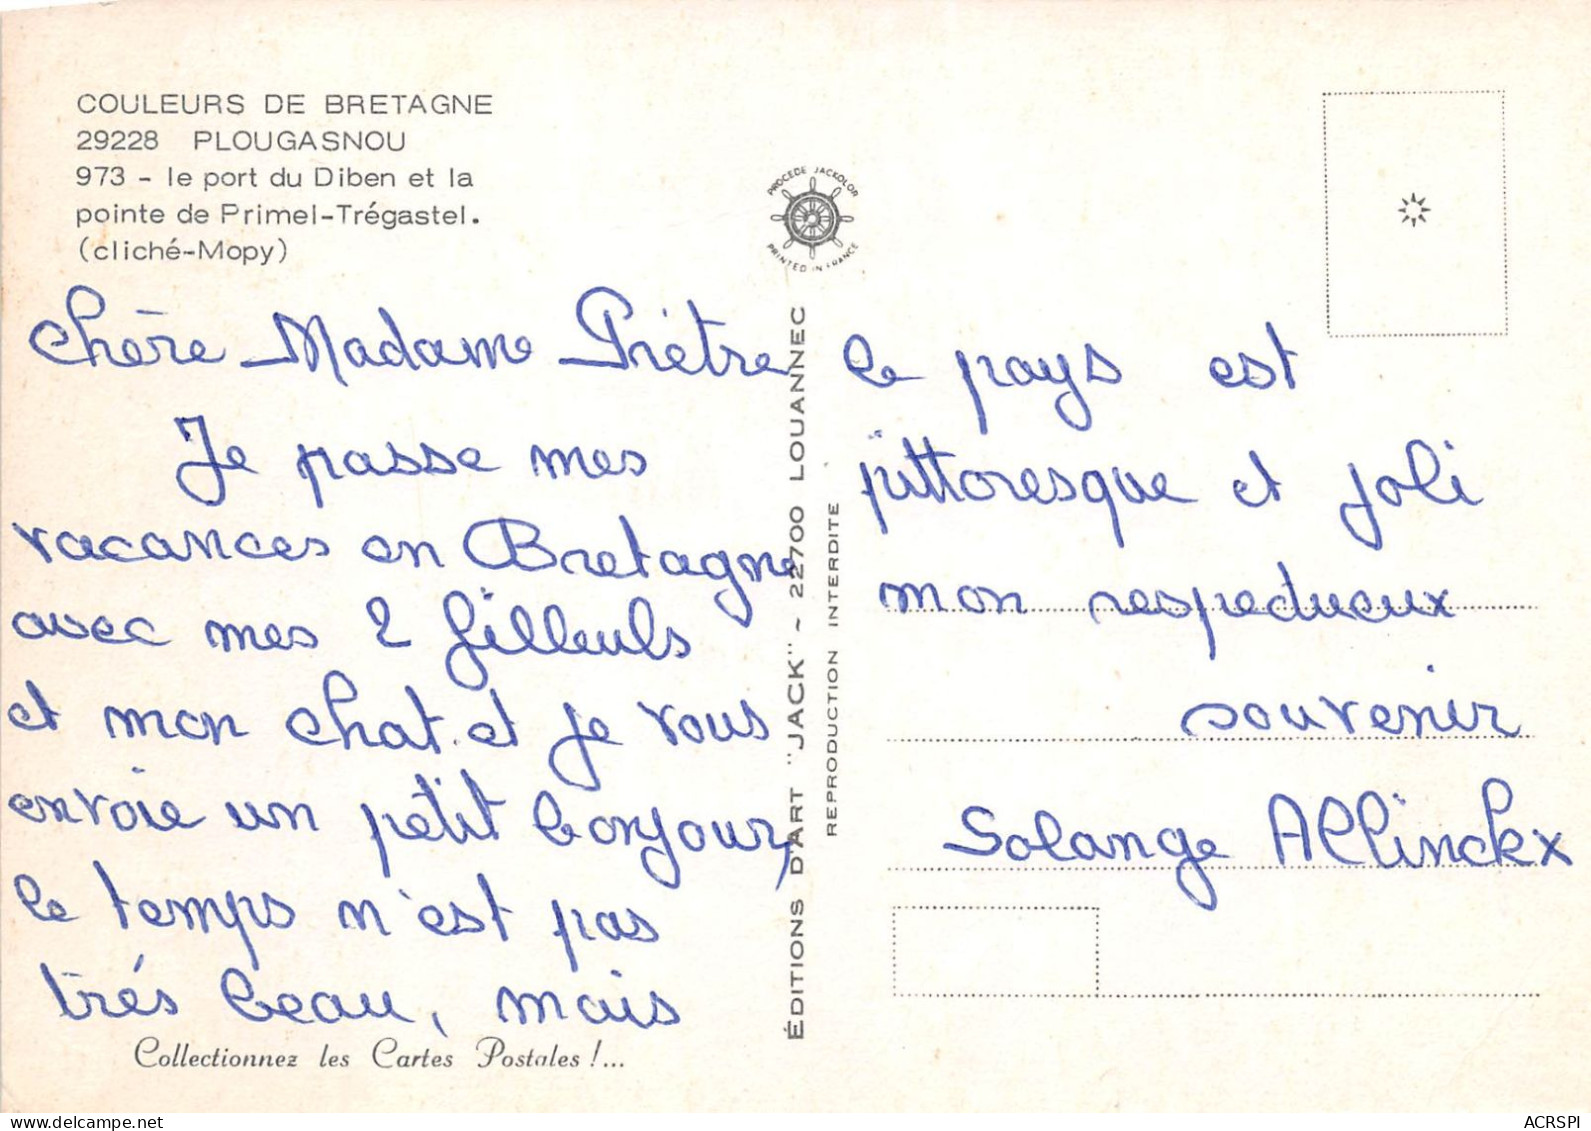 COULEURS DE BRETAGNE
29228 PLOUGASNOU
973 - le port du Diben et la
pointe de Primel-Trégastel.
(cliché-Mopy)
PROCEDE JACKOLOR
PRINTED IN FRANCE
Chère Madame Piètre
Je passe mes
vacances en Bretagne
avec mes 2 filleuls
et mon chat. et je vous
envoie un petit bonjour,
le temps n'est pas
trés beau, mais
Collectionnez les Cartes Postales !...
ÉDITIONS D'ART "JACK" ~ 22700 LOUANNEC
REPRODUCTION INTERDITE
le pays est
pittoresque et joli
mon respectueux
souvenir
Solange Allinckx
ACRSPI